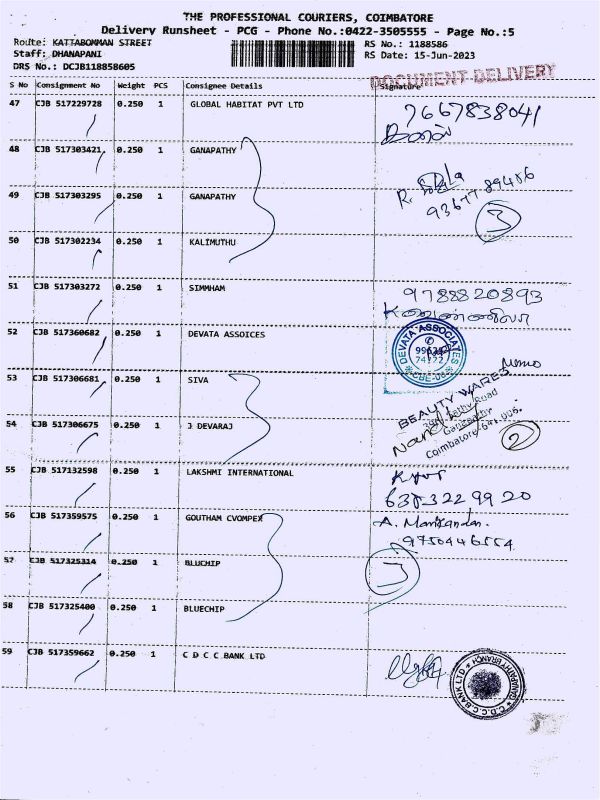 THE PROFESSIONAL COURIERS, COIMBATORE
Delivery Runsheet - PCG - Phone No.:0422-3505555 - Page No.:5
Route: KATTABOMMAN STREET RS No.: 1188586
Staff: DHANAPANI RS Date: 15-Jun-2023
DRS No.: DCJB118858605
DOCUMENT DELIVERY
S No Consignment No Weight PCS Consignee Details Signature
47 CJB 517229728 0.250 1 GLOBAL HABITAT PVT LTD 7667838041
48 CJB 517303421 0.250 1 GANAPATHY
49 CJB 517303295 0.250 1 GANAPATHY 93677 89486
3
50 CJB 517302234 0.250 1 KALIMUTHU
51 CJB 517303272 0.250 1 SIMMHAM 9788820893
52 CJB 517360682 0.250 1 DEVATA ASSOICES
DEVATA ASSOCIATES
74172
CBE-06
Memo
53 CJB 517306681 0.250 1 SIVA
BEAUTY WARES
Sathy Road
Ganapathy
Coimbatore-641 006.
2
54 CJB 517306675 0.250 1 J DEVARAJ
55 CJB 517132598 0.250 1 LAKSHMI INTERNATIONAL
6383229920
56 CJB 517359575 0.250 1 GOUTHAM CVOMPEX A. Manikandan.
9750446554
57 CJB 517325314 0.250 1 BLUCHIP
3
58 CJB 517325400 0.250 1 BLUECHIP
59 CJB 517359662 0.250 1 C D C C BANK LTD
C.D.C.C.BANK LTD
GANAPATHY BRANCH